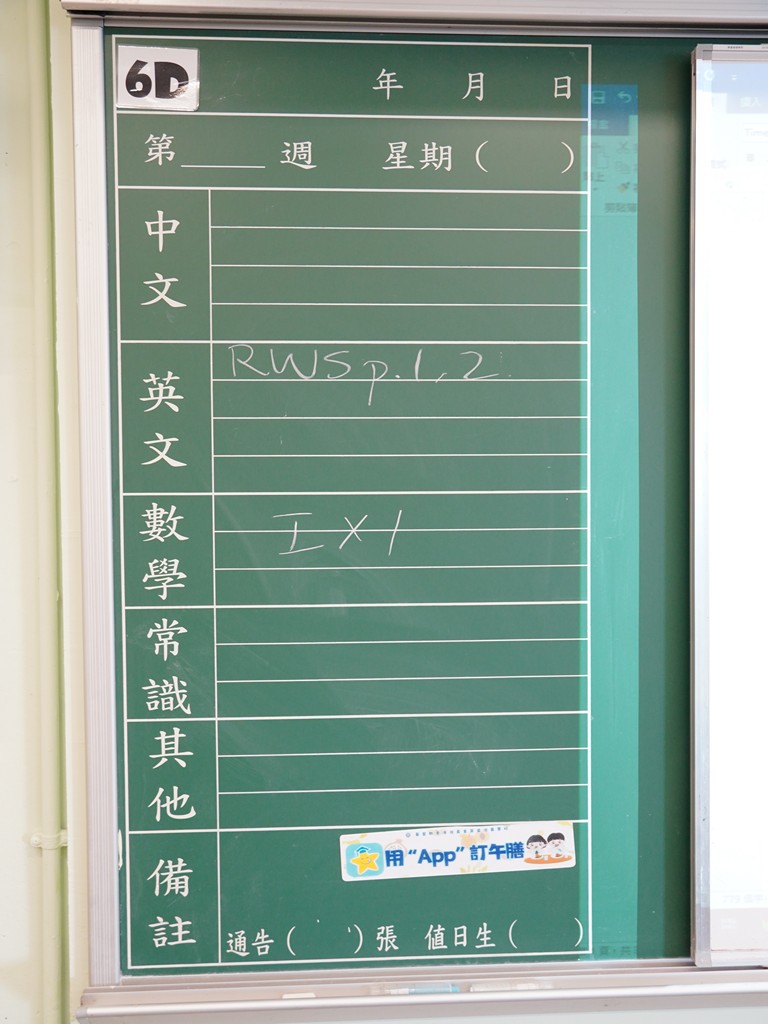 6D
年 月 日
第____週 星期( )
中文
英文 RWS p.1, 2.
數學 工×1
常識
其他
備註
用“App”訂午膳
通告( )張 值日生( )